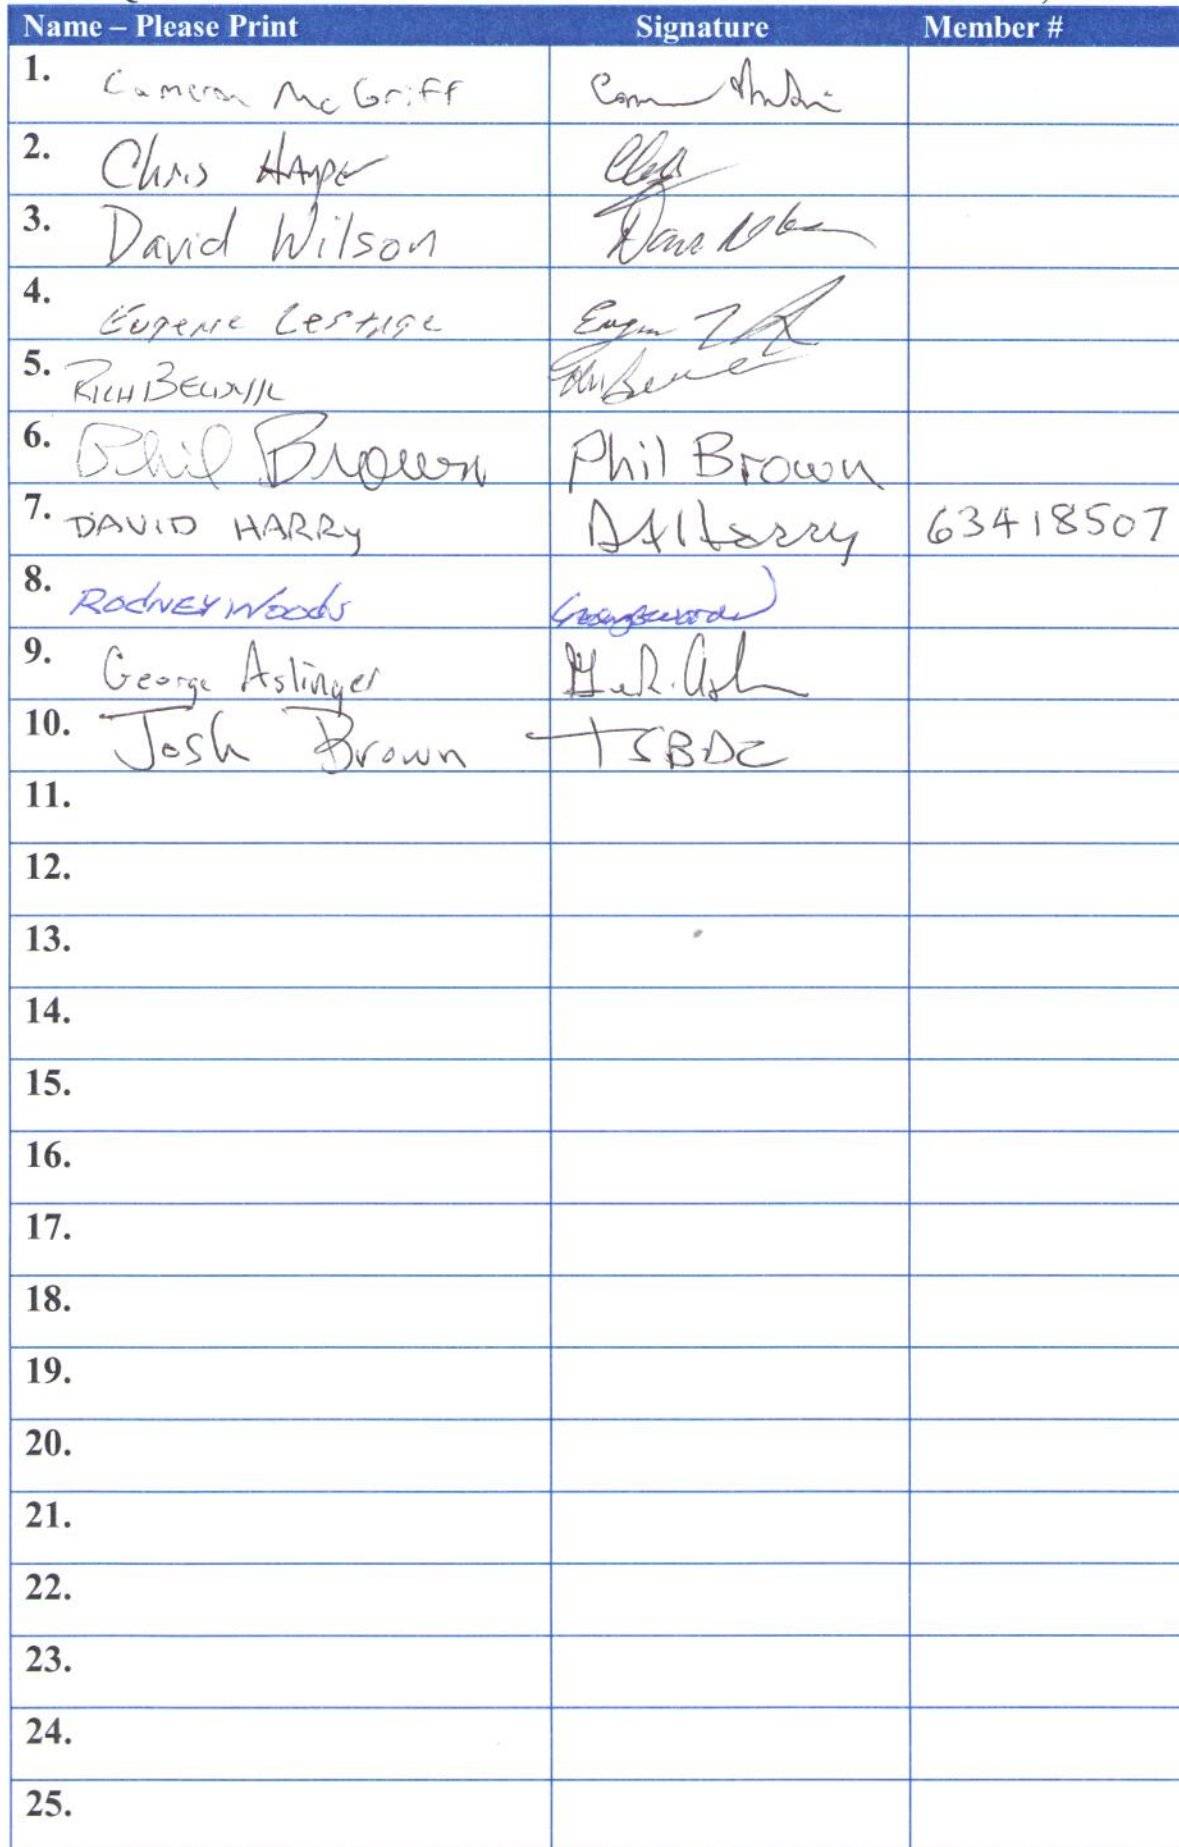 Name – Please Print Signature Member #
1. Cameron McGriff
2. Chris Harper
3. David Wilson
4. Eugene Lestage
5. RICH
6. Phil Brown Phil Brown
7. DAVID HARRY DAHarry 63418507
8. RODNEY WOODS
9. George Aslinger
10. Josh Brown TSBDC
11.
12.
13.
14.
15.
16.
17.
18.
19.
20.
21.
22.
23.
24.
25.